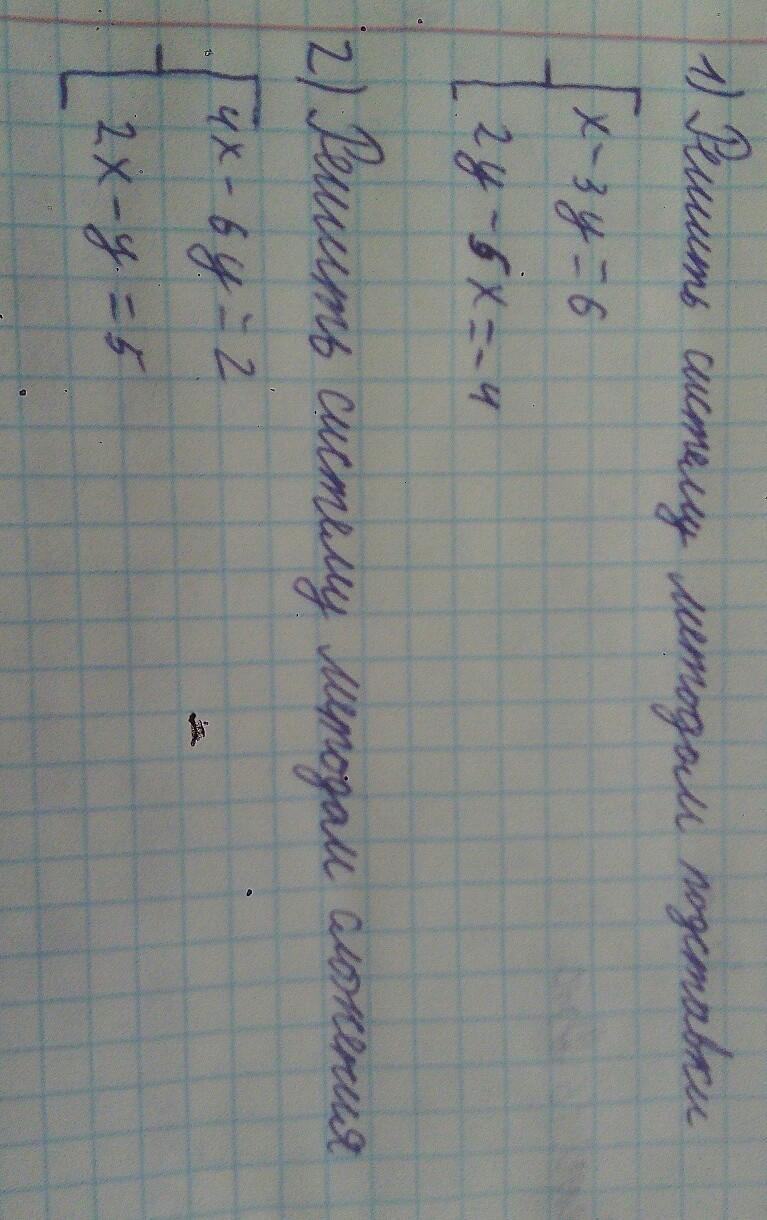 1) Решить систему методом подставки
x - 3y = 6
2y - 5x = -4
2) Решить систему методам сложения
4x - 6y = 2
2x - y = 5